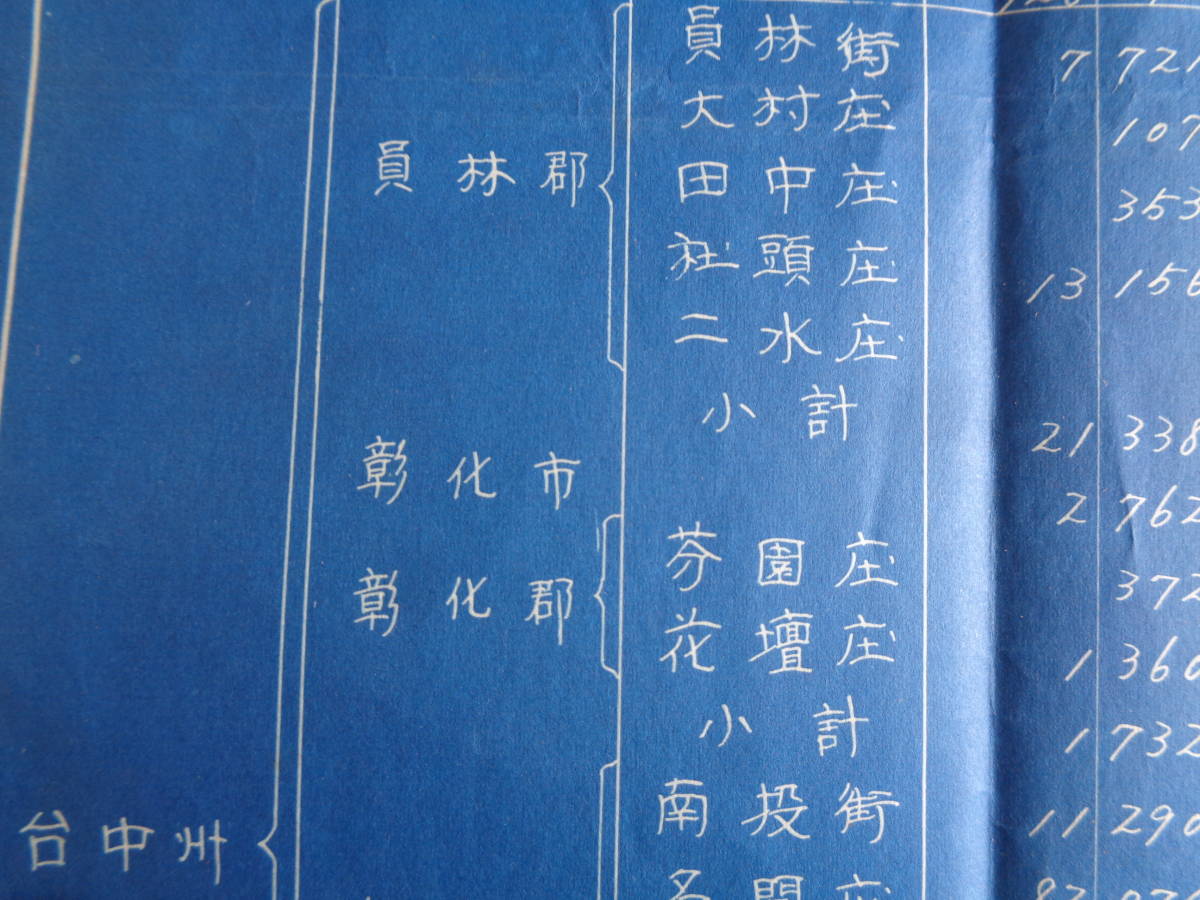 員林街 7 721
大村庄 107
員林郡 田中庄 353
社頭庄 13 156
二水庄
小計 21 338
彰化市 2 762
芬園庄 372
彰化郡 花壇庄 1 360
小計 1 732
南投街 11 290
台中州
名間庄